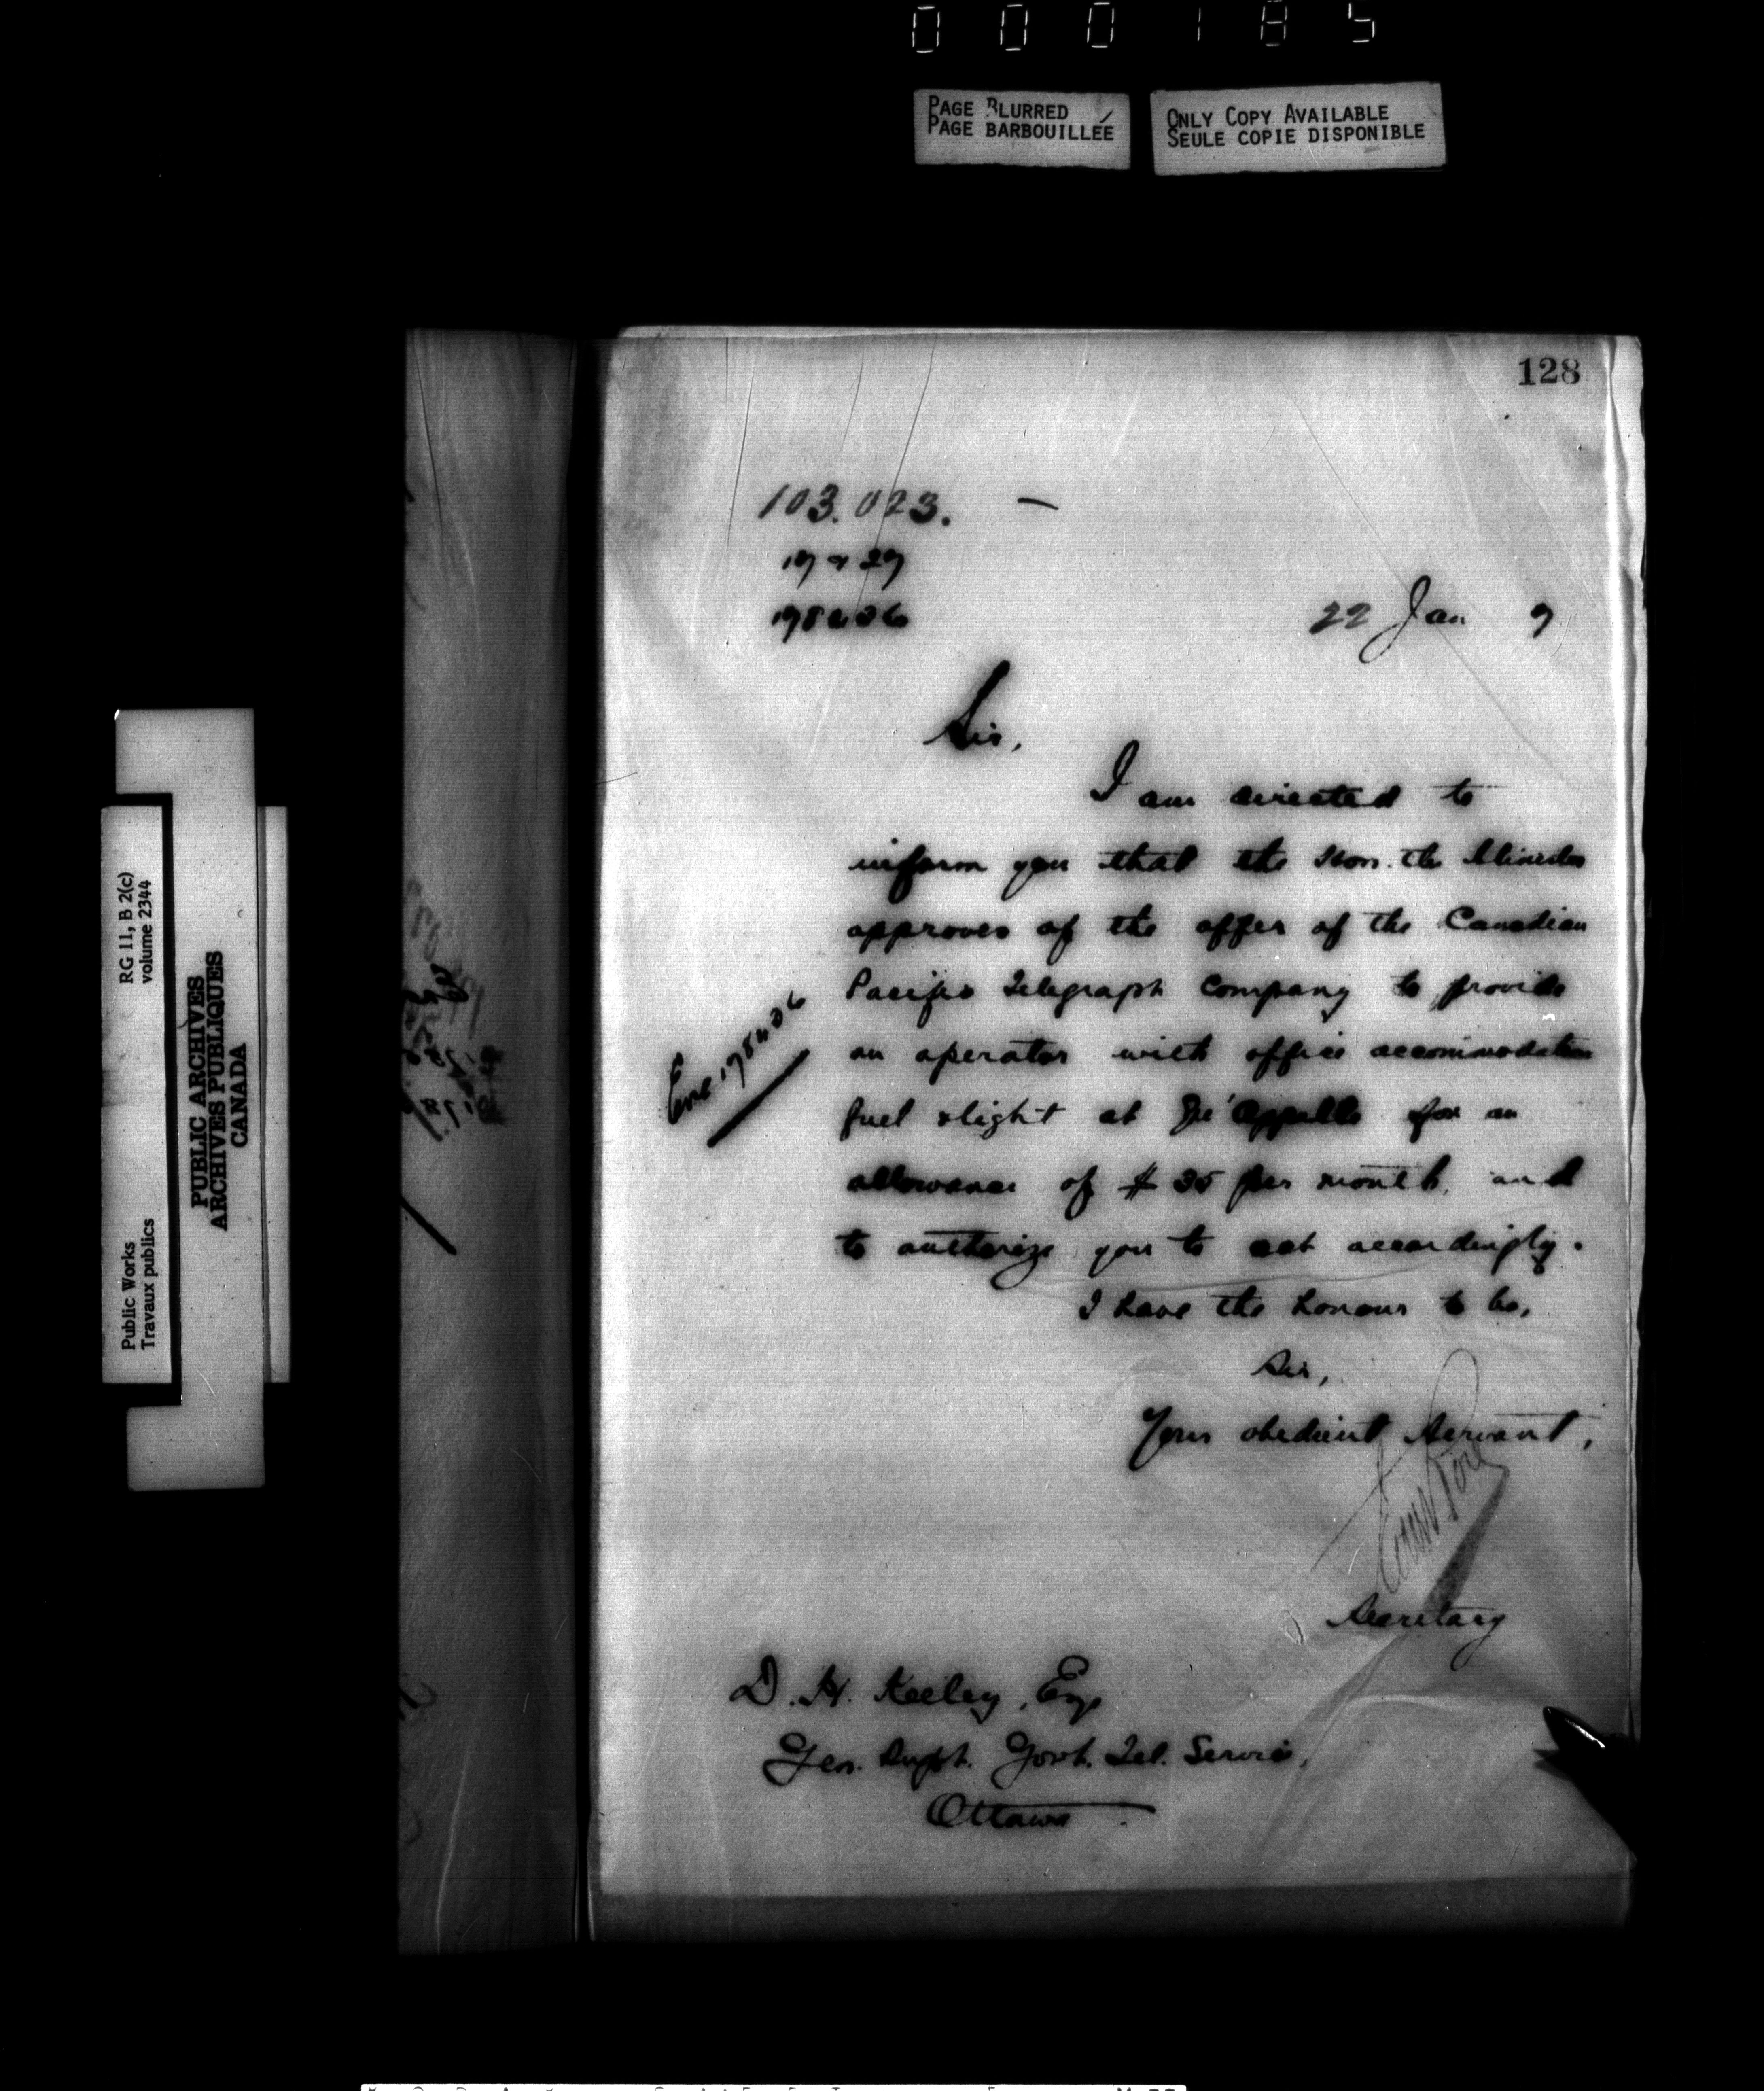 000185
PAGE BLURRED
PAGE BARBOUILLÉE
ONLY COPY AVAILABLE
SEULE COPIE DISPONIBLE
128
103.023.
22 Jan 7
Sir,
I am directed to
inform you that the Hon. the Minister
approves of the offer of the Canadian
Pacific Telegraph Company to provide
an operator with office accommodation
fuel & light at Qu'Appelle for an
allowance of $ 35 per month, and
to authorize you to act accordingly.
I have the honour to be,
Sir,
Your obedient Servant,
Secretary
D. H. Keeley, Esq
Gen. Supt. Govt. Tel. Service,
Ottawa
RG 11, B 2(c)
volume 2344
Public Works
Travaux publics
PUBLIC ARCHIVES
ARCHIVES PUBLIQUES
CANADA